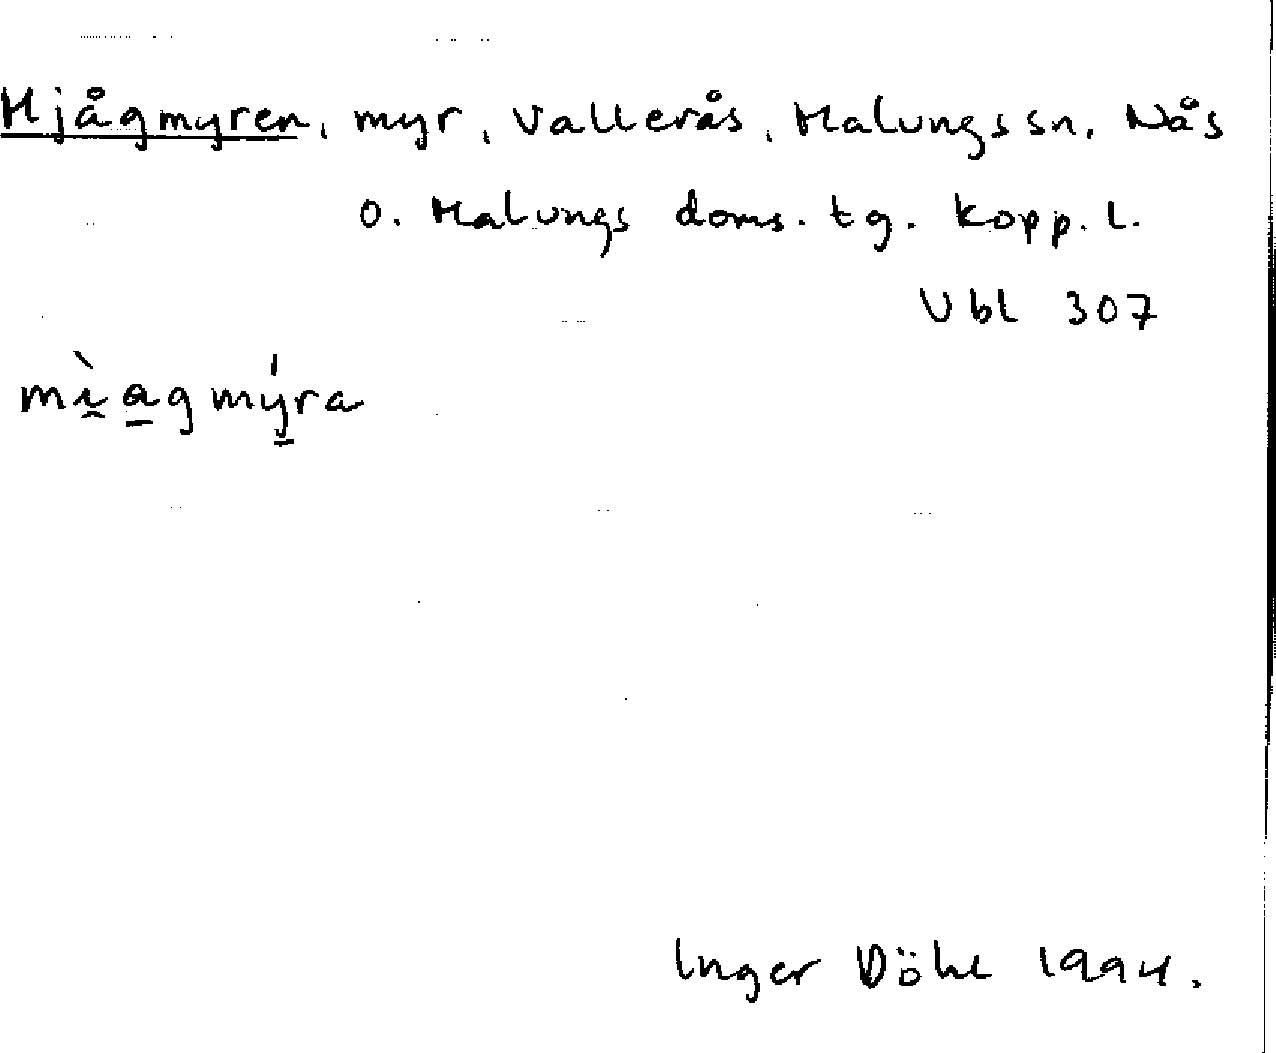 Mjågmyren, myr, Vallerås, Malungs sn, Nås
o. Malungs doms. tg. Kopp. L.
Ubl 307
mı̯̀a̠gmý̠ra
Inger Döhl 1994.